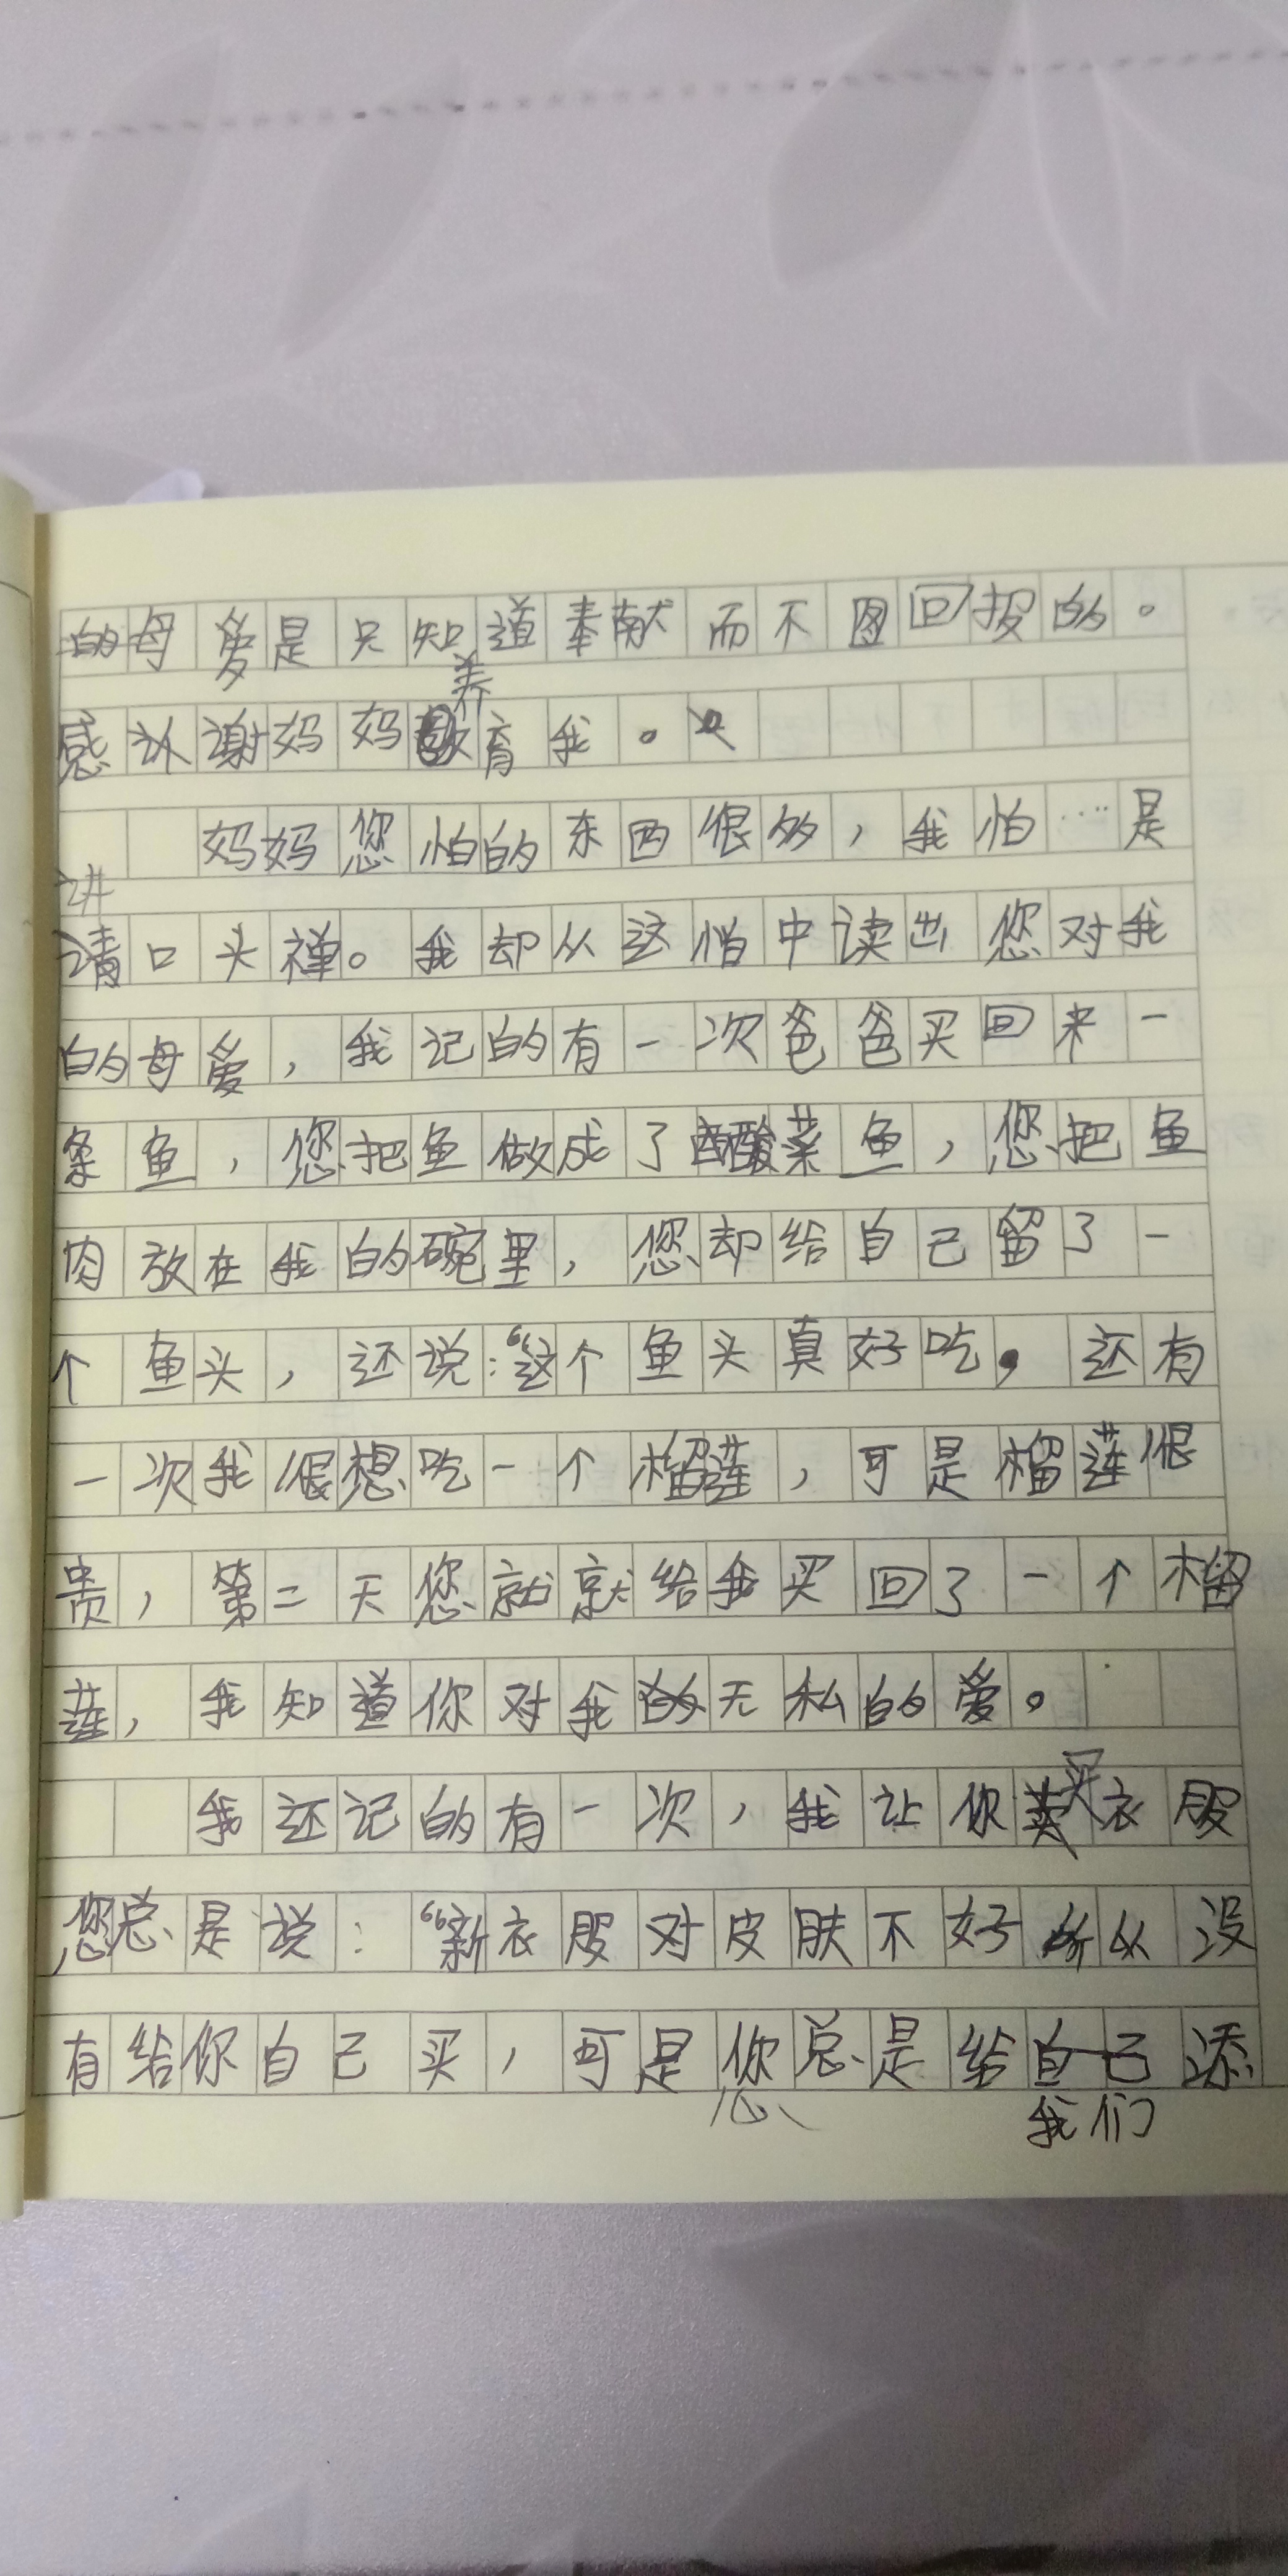 的母爱是只知道奉献而不图回报的。
养
感认谢妈妈育我。
妈妈您怕的东西很多，我怕…是
讲
请口头禅。我却从这怕中读出您对我
的母爱，我记的有一次爸爸买回来一
条鱼，您把鱼做成了酸菜鱼，您把鱼
肉放在我的碗里，您却给自己留了一
个鱼头，还说：“这个鱼头真好吃，还有
一次我很想吃一个榴莲，可是榴莲很
贵，第二天您就就给我买回了一个榴
莲，我知道你对我的无私的爱。
买
我还记的有一次，我让你卖衣服
您总是说：“新衣服对皮肤不好所以没
有给你自己买，可是您总是给自己添
您 我们